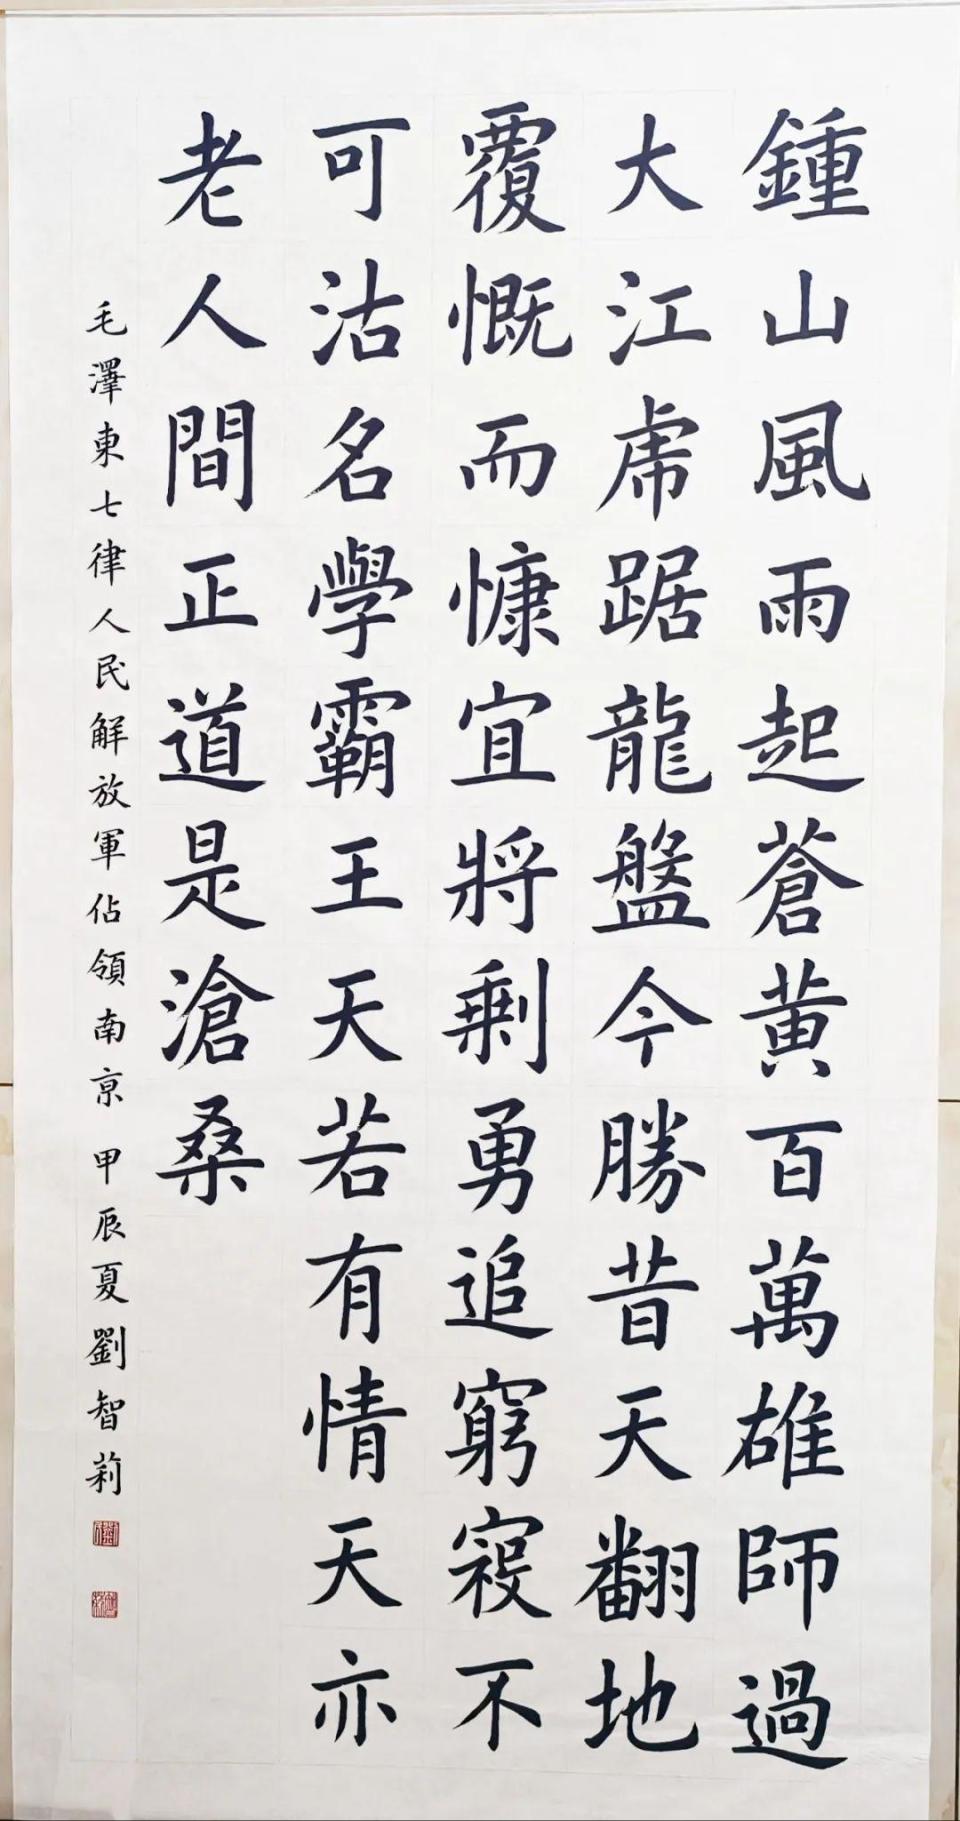 鍾山風雨起蒼黄百萬雄師過
大江虎踞龍盤今勝昔天翻地
覆慨而慷宜將剩勇追窮寇不
可沽名學霸王天若有情天亦
老人間正道是滄桑
毛澤東七律人民解放軍佔領南京 甲辰夏劉智莉